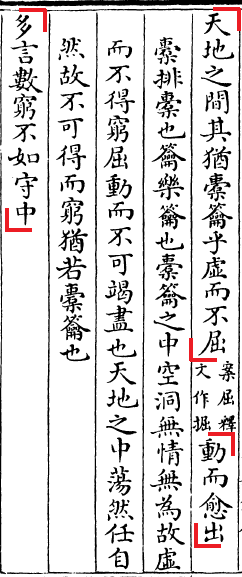 天地之間其猶橐籥乎虛而不屈案屈釋文作掘動而愈出
橐排橐也籥樂籥也橐籥之中空洞無情無為故虛
而不得窮屈動而不可竭盡也天地之中蕩然任自
然故不可得而窮猶若橐籥也
多言數窮不如守中